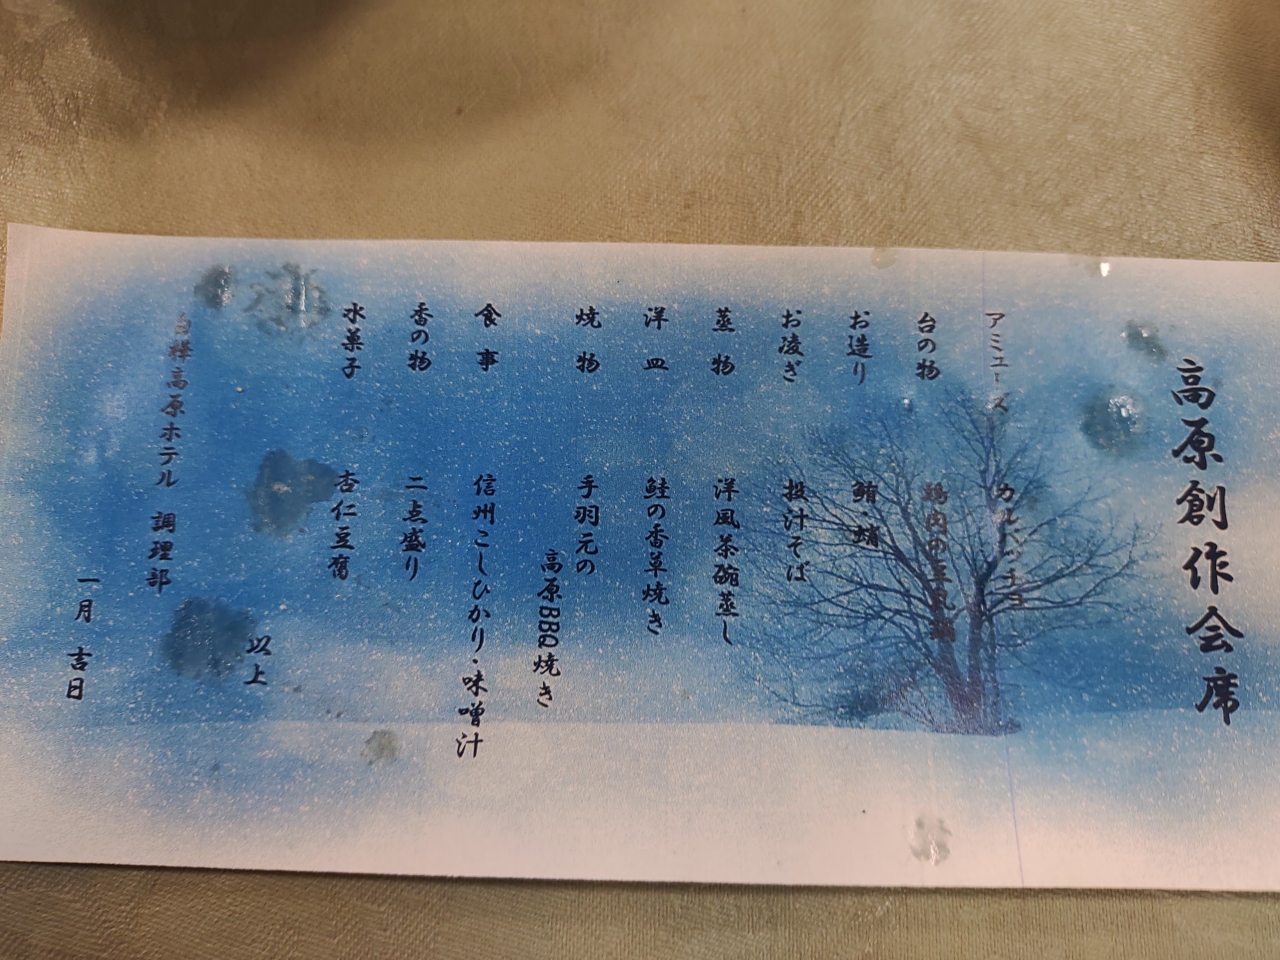 高原創作会席
アミューズ　カルパッチョ
台の物　鶏肉の豆乳鍋
お造り　鮪・鰤
お凌ぎ　投汁そば
蒸物　洋風茶碗蒸し
洋皿　鮭の香草焼き
焼物　手羽元の
高原BBQ焼き
食事　信州こしひかり・味噌汁
香の物　二点盛り
水菓子　杏仁豆腐
以上
白樺高原ホテル　調理部
一月　吉日